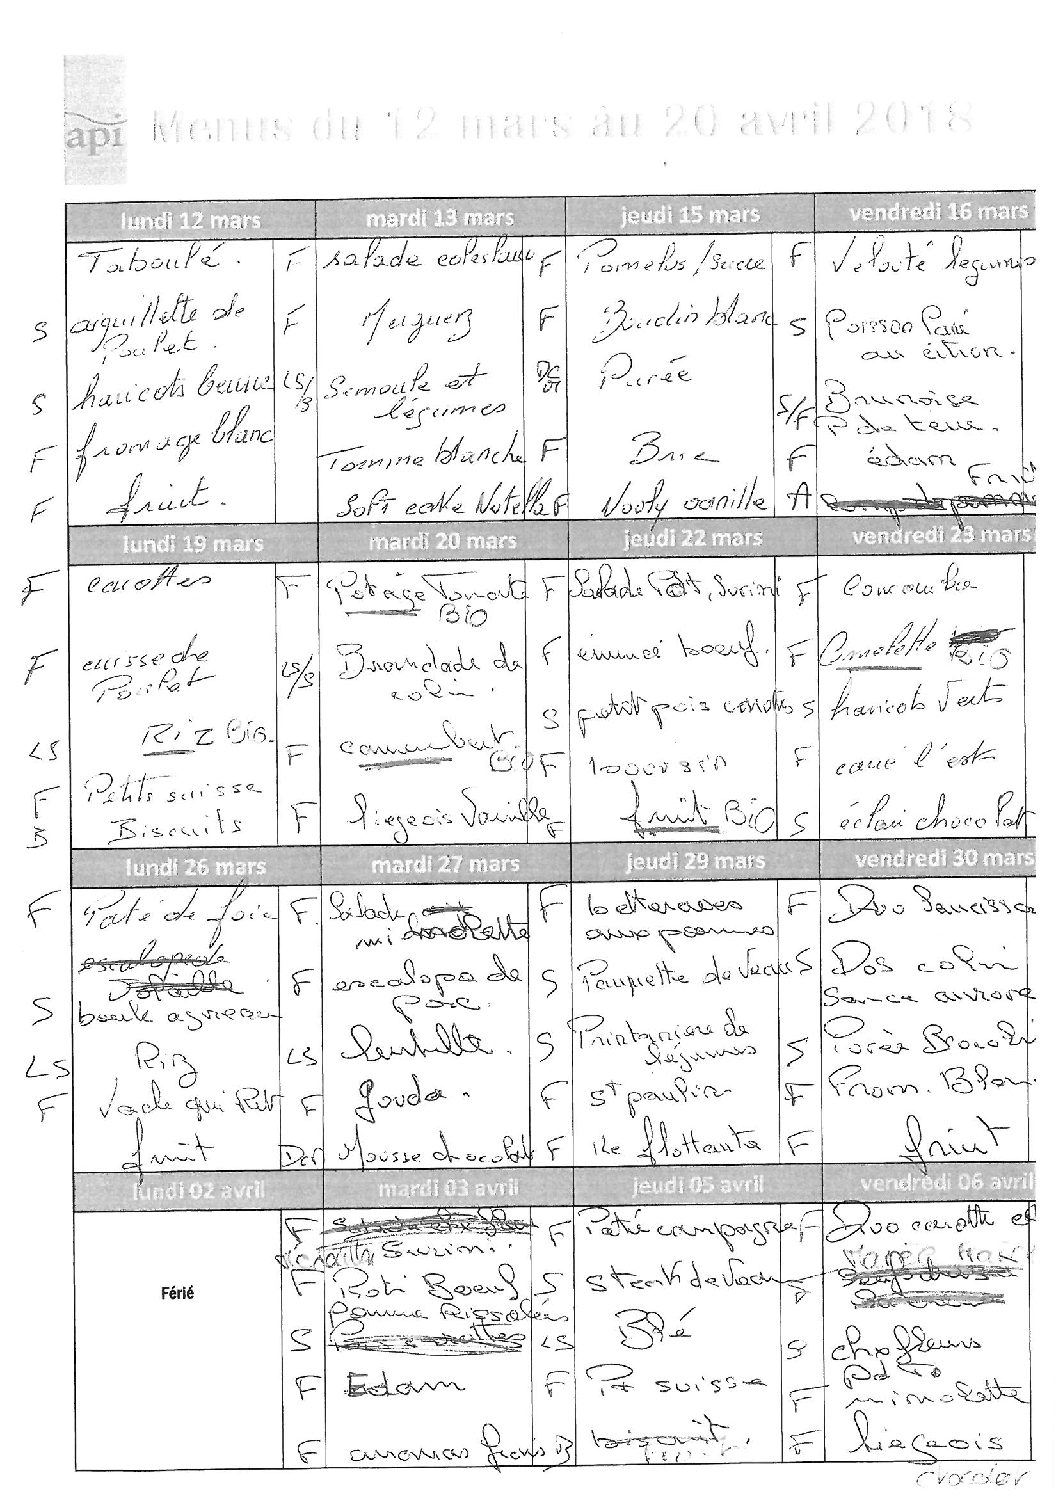 api
Menus du 12 mars au 20 avril 2018
lundi 12 mars mardi 13 mars jeudi 15 mars vendredi 16 mars
Taboulé. F salade F Pomelos/Sucre F Velouté légumes
S aiguillette de F F Boudin blanc S Poisson Pané
Poulet. au citron.
S haricots beurre LS/S Semoule et Purée S/F Brunoise
légumes P de terre.
F fromage blanc Tomme blanche F Brie F édam
F fruit. Soft cake Nutella F vanille A Fruit
lundi 19 mars mardi 20 mars jeudi 22 mars vendredi 23 mars
F carottes F Potage Tomate F Salade Pdt, Surimi F Concombre
BIO
F cuisse de LS/S Brandade de F émincé boeuf. F Omelette BIO
Poulet colin.
S petit pois carottes S haricots verts
LS Riz Bio. F camembert BIO F boursin F carré l'est
F Petits suisse
B Biscuits F liegeois Vanille F fruit BIO S éclair chocolat
lundi 26 mars mardi 27 mars jeudi 29 mars vendredi 30 mars
F Paté de foie F Salade F betteraves F Duo Saucisson
mimolette aux pommes
escalope de
volaille F escalope de S Paupiette de Veau S Dos colin
S boule agneau porc. Sauce aurore
LS Riz LS lentille. S Printanière de S Purée Brocolis
légumes
F Vache qui Rit F gouda. F st paulin F From. Blanc
fruit Des Mousse chocolat F Ile flottante F fruit
lundi 02 avril mardi 03 avril jeudi 05 avril vendredi 06 avril
F F Paté campagne F Duo carotte et
Surimi.
Férié F Roti Boeuf S Steak de Veau S
Pomme Rissolées
S LS Blé S chofleurs
Pd Te
F Edam F Pt suisse F mimolette
F ananas frais B biscuit. F liegeois